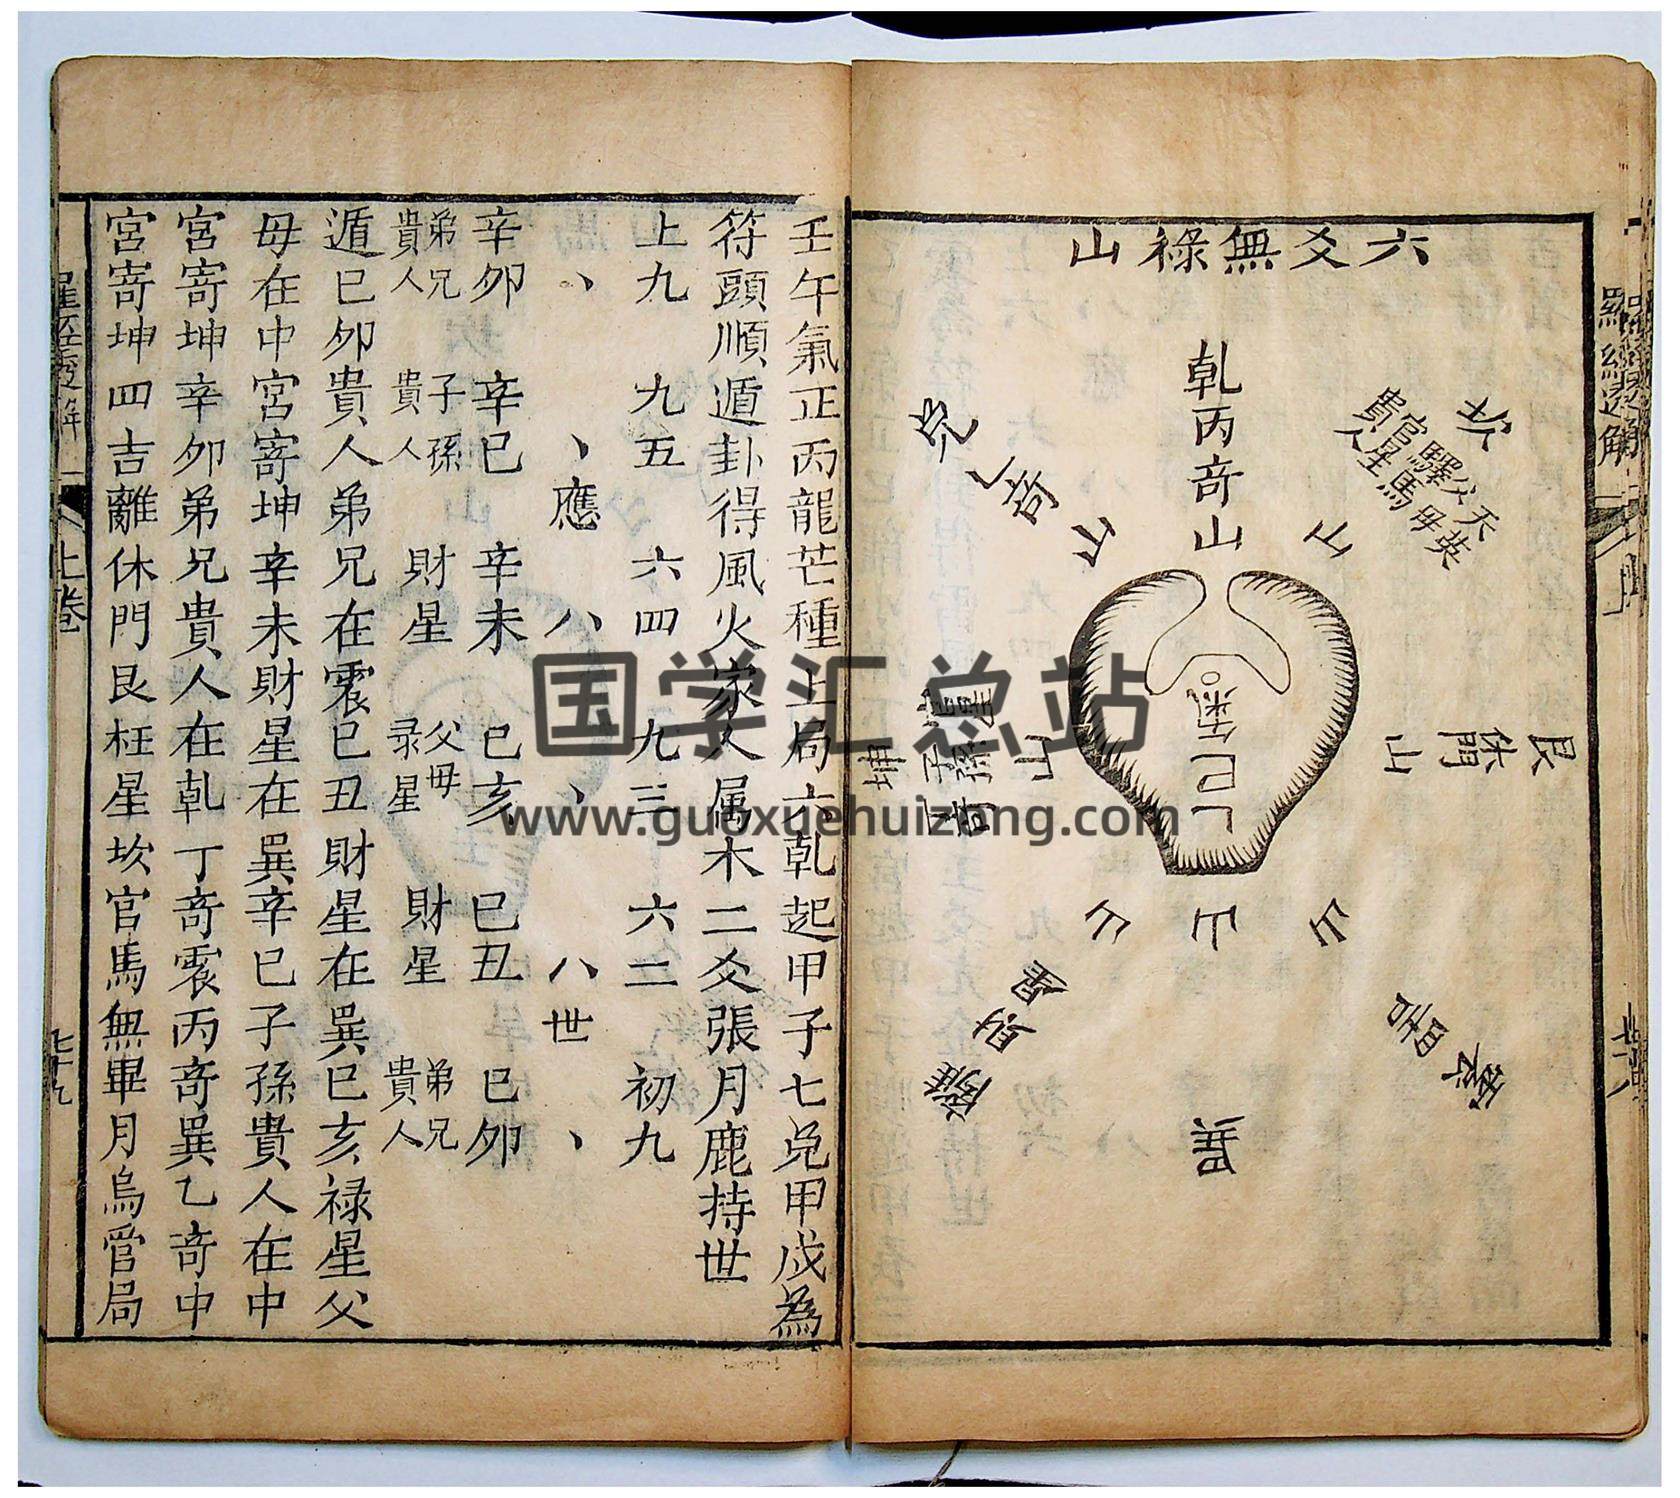 六爻無祿山
乾丙奇山
坎
天英
父母
驛馬
官星
貴人
山
艮
休門
山
山
巽
山
離
財星
山
坤
子孫
山
兌
乙奇
山
己氣
羅經透解
壬午氣正丙龍芒種上局六乾起甲子七兌甲戌為
符頭順遁卦得風火家人属木二爻張月鹿持世
上九 九五 六四 九三 六二 初九
、 、應 八 、 八世 、
辛卯 辛巳 辛未 己亥 己丑 己卯
弟兄 子孫 財星 父母 財星 弟兄
貴人 貴人 录星 貴人
遁己卯貴人弟兄在震己丑財星在巽己亥祿星父
母在中宮寄坤辛未財星在巽辛巳子孫貴人在中
宮寄坤辛卯弟兄貴人在乾丁奇震丙奇巽乙奇中
宮寄坤四吉離休門艮枉星坎官馬無畢月烏管局
羅經透解
上卷
七十九
国学汇总站
www.guoxuehuizong.com